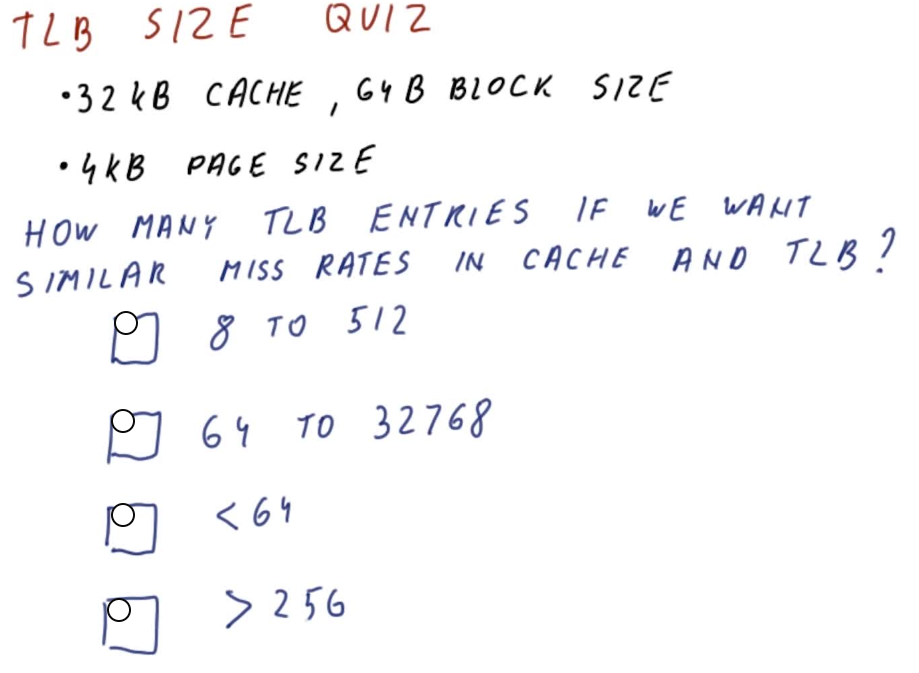 TLB SIZE QUIZ
• 32 kB CACHE, 64 B BLOCK SIZE
• 4 kB PAGE SIZE
HOW MANY TLB ENTRIES IF WE WANT
SIMILAR MISS RATES IN CACHE AND TLB?
8 TO 512
64 TO 32768
< 64
> 256